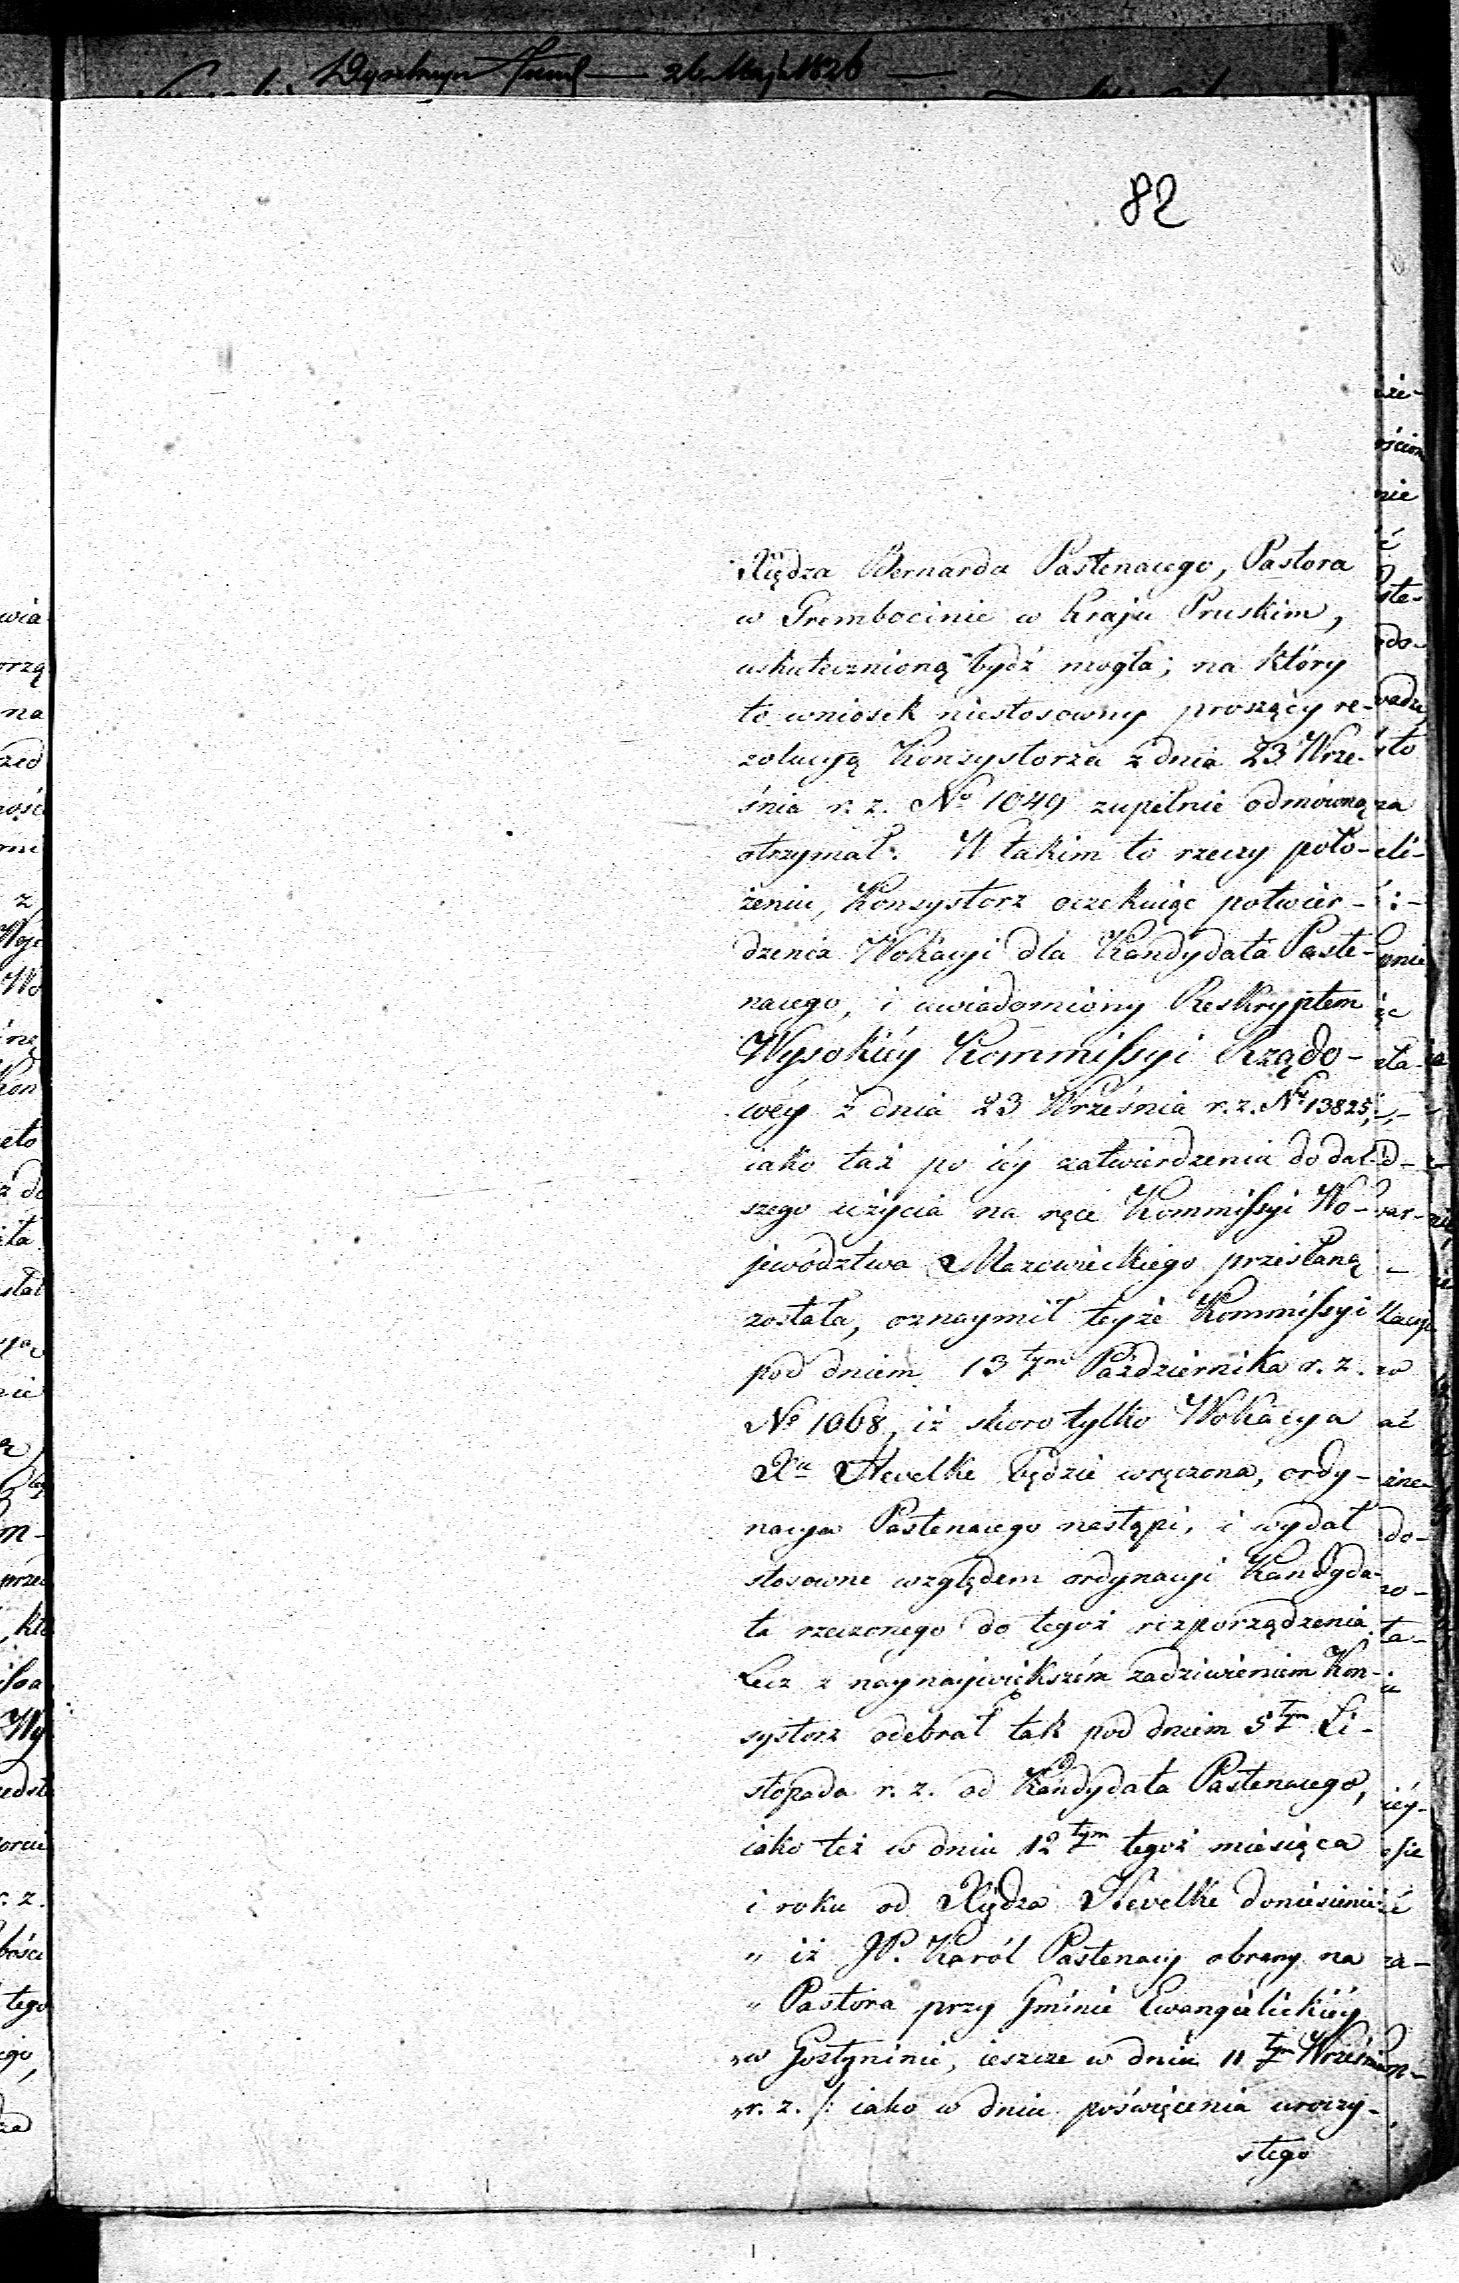 26 Maja 1826
82
Xiędza Bernarda Pastenaciego, Pastora
w Grembocinie w Kraju Pruskim,
uskutecznioną bydź mogła; na który
to wniosek niestosowny proszący re-
zolucyą Konsystorza z dnia 23 Wrze-
śnia r. z. No 1049 zupełnie odmówną
otrzymał. W takim to rzeczy poło-
żeniu, Konsystorz oczekuiąc potwier-
dzenia Wokacyi dla Kandydata Paste-
naciego, i uwiadomiony Reskryptem
Wysokiéy Kommissyi Rządo-
wéy z dnia 23 Września r. z. No 13825,
iako taż po iéy zatwierdzeniu do dal-
szego użycia na ręce Kommissyi Wo-
jewództwa Mazowieckiego przesłaną
została, oznaymił teyże Kommissyi
pod dniem 13tym Października r. z.
No 1068, iż skoro tylko Wokacya
Xu Hevelke będzie wręczona, ordy-
nacya Pastenaciego nastąpi, i wydał
stosowne względem ordynacyi Kandyda-
ta rzeczonego do tegoż rozporządzenia.
Lecz z naynajwiększém zadziwieniem Kon-
systorz odebrał tak pod dniem 5tym Li-
stopada r. z. od Kandydata Pastenaciego,
iako też w dniu 12tym tegoż miesiąca
i roku od Xiędza Hevelke doniesienie
„ iż JP. Karól Pastenacy obrany na
„ Pastora przy Gminie Ewangielickiéy
„ w Gostyninie, ieszcze w dniu 11tym Września
„ r. z. /: iako w dniu poświęcenia uroczy-
stego